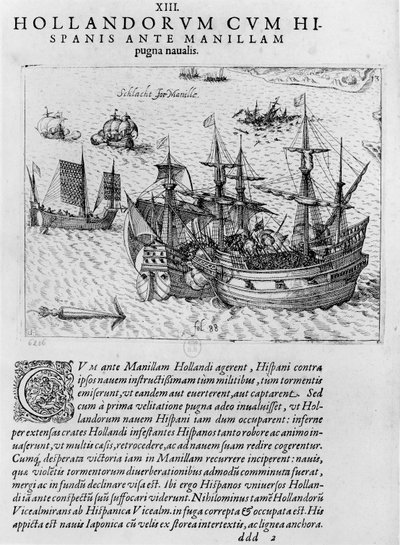 XIII.
HOLLANDORVM CVM HI-
SPANIS ANTE MANILLAM
pugna naualis.
13
Schlacht for Manille.
fol 88
6206
CVM ante Manillam Hollandi agerent, Hispani contra
ipsos nauem instructißimam tùm militibus, tùm tormentis
emiserunt, vt eandem aut euerterent, aut captarent. Sed
cum à prima velitatione pugna adeo inualuisset, vt Hol-
landorum nauem Hispani iam dum occuparent: inferne
per extensas crates Hollandi infestantes Hispanos tanto robore ac animo in-
uaserunt, vt multis casis, retrocedere, ac ad nauem suam redire cogerentur.
Cumq; desperata victoria iam in Manillam recurrere inciperent: nauis,
quæ violentis tormentorum diuerberationibus admodũ comminuta fuerat,
mergi ac in fundũ declinare visa est. Ibi ergo Hispános vniuersos Hollan-
di iã ante conspectũ suũ suffocari viderunt. Nihilominus tamẽ Hollandorũ
Vicealmirani ab Hispanica Vicealm. in fuga correpta & occupata est. His
appicta est nauis Iaponica cũ velis ex storea intertextis, ac lignea anchora.
ddd 2